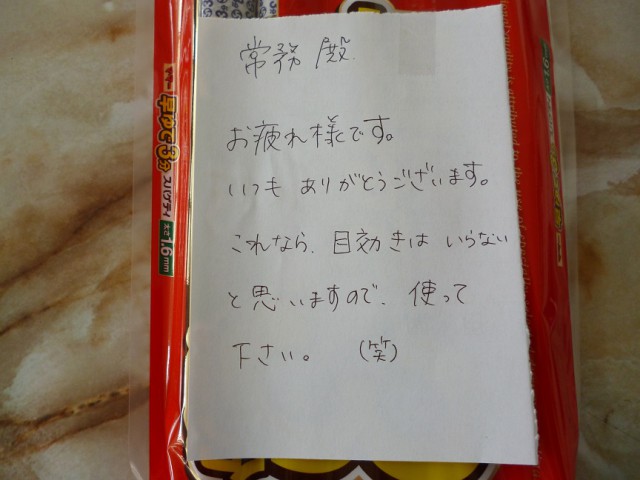 常務殿
お疲れ様です。
いつも ありがとうございます。
これなら、目効きは いらない
と思いますので、使って
下さい。 (笑)
早ゆで3分 スパゲティ 太さ 1.6mm